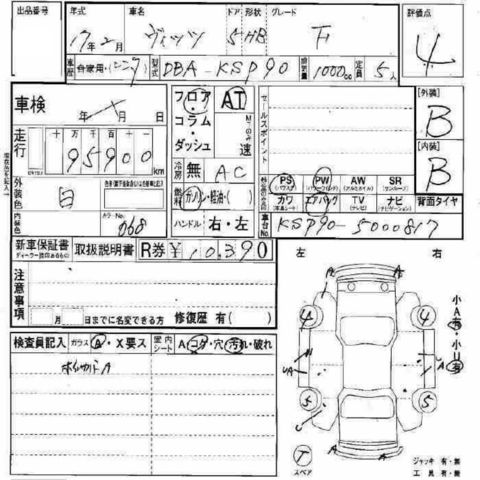 出品番号 年式 車名 ドア 形状 グレード 評価点
17年2月 ヴィッツ 5 HB F 4
車歴 自家用・レンタ 型式 DBA-KSP90 排気量 1000cc 定員 5人
車検 年 月 日
フロア・コラム・ダッシュ AT 速
セールスポイント
[外装] B
[内装] B
走行 十 万 千 百 十 95900 km
冷房 無 AC
燃料 ガソリン・軽油・( )
ハンドル 右・左
外装色 白
内装色 カラーNo. 068
PS (パワステ) PW (パワーウィンドウ) AW (アルミホイル) SR (サンルーフ)
カワ (本革シート) エアバッグ TV (テレビ) ナビ (ナビゲーション) 背面タイヤ
車台No. KSP90-5000817
新車保証書 ディーラー捺印あるもの 取扱説明書 R券 ¥10,390
注意事項
月 日までに名変できる方 修復歴 有( )
検査員記入 ガラス A・X要ス 室内シート A コゲ・穴 汚れ・破れ
左 右
A A
4 4
小A有・小U有
U A
5 5
T スペア
A A
ジャッキ 有・無
工具 有・無